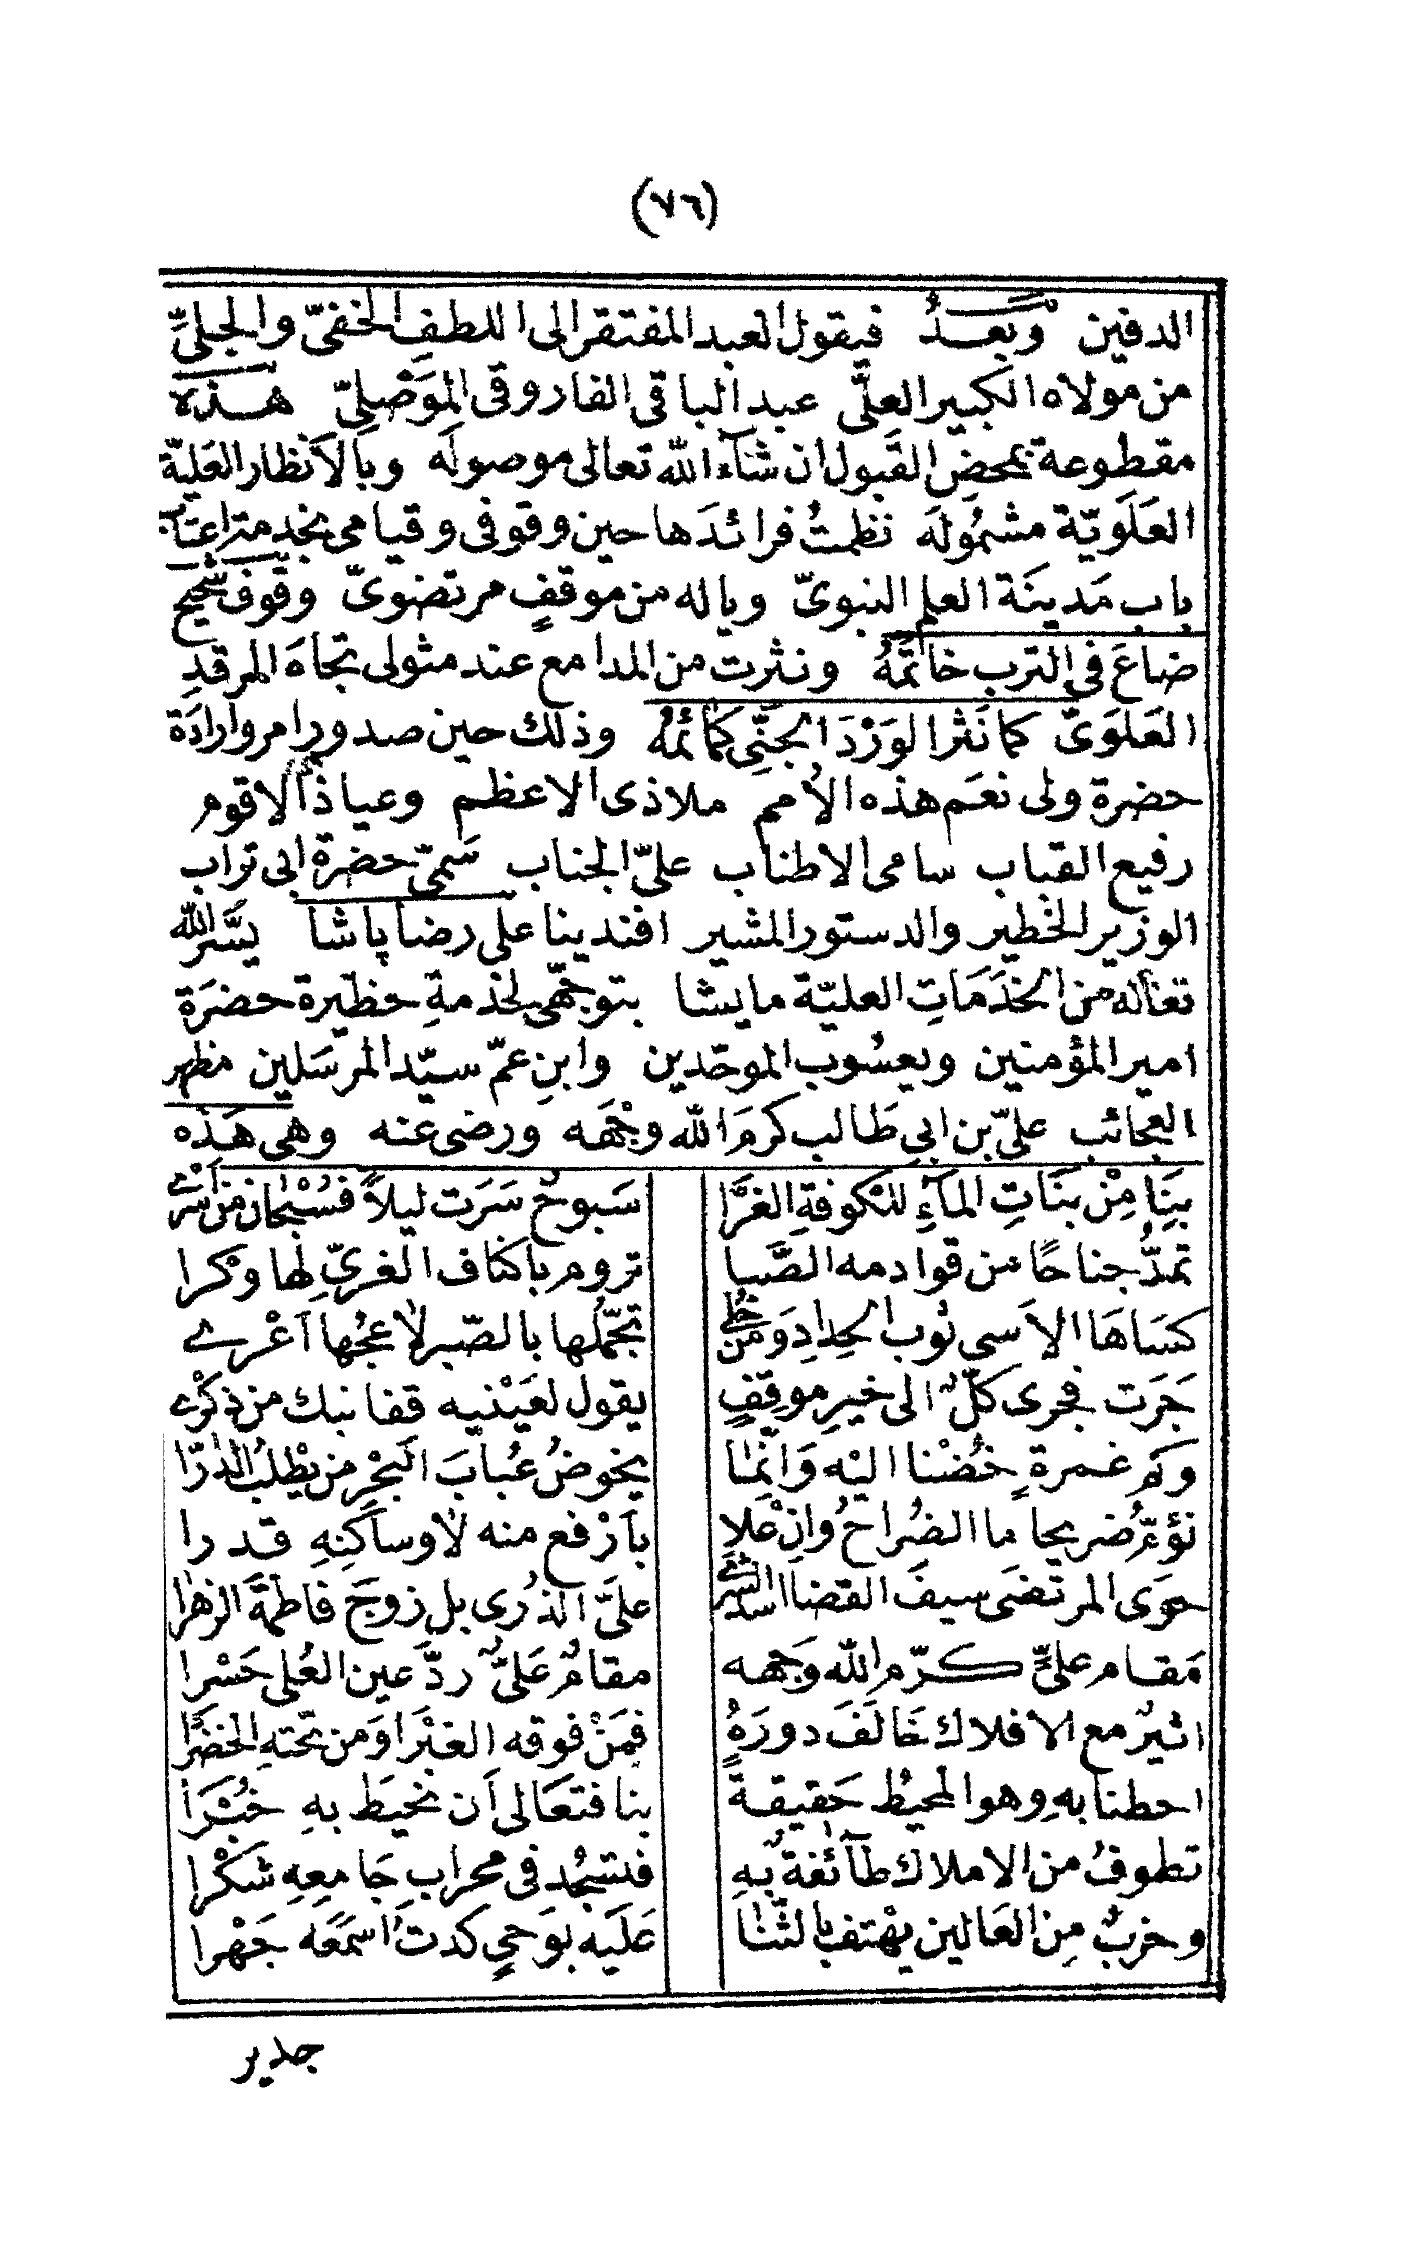 (٧٦)
الدفين وبعـد فيقول العبد المفتقر الى اللطف الخفيّ والجليّ
من مولاه الكبير العليّ عبد الباقي الفاروقي المَوْصليّ هـذه
مقطوعة بمحض القَبول ان شآء الله تعالى موصوله وبالأنظار العَليّة
العَلَويّة مشمُوله نظمتُ فرائدَها حين وقوفى وقيامى بخدمة اعتاب
باب مَدينَة العلم النبوىّ وياله من موقفٍ مرتضوىّ وقوف شحيح
ضاعَ فى الترب خاتمُهُ ونثرت من المدامع عند مثولى تجاهَ المرقدِ
العَلَوىّ كما نَثرَ الوَرْدَ الجَنِّى كمائمُهُ وذلك حين صدور امر وارادَة
حضرة ولى نعَم هذه الأمم ملاذى الاعظم وعياذى الاقوم
رفيع القباب سامى الاطناب علىّ الجناب سَمىّ حضرة ابى تراب
الوزير الخطير والدستور المشير افندينا على رضا پاشا يسَّر الله
تعالى له من الخدَمَاتِ العليّة ما يشا بتوجّهى لخدمةِ حظيرة حضرَة
امير المؤمنين ويعسُوب الموحّدين وابنِ عمّ سيّد المرسَلين مظهر
العجائب علىّ بن ابى طَالب كرمَ الله وجْهَه ورضى عنه وهى هَذه
بِنَا مِنْ بنَاتِ المآءِ للكوفةِ الغرَّا سَبوحٌ سَرَت ليلاً فسُبْحان من اَسْرى
تمدُّ جناحًا من قوادمه الصَّبا تروم باكناف الغرىّ لها وَكْرا
كسَاهَا الاَسى ثوب الحِدادِ وَمن حُلى تجمّلها بالصّبر لاعجُها اَعْرى
جَرَت فجرى كلٌّ الى خيرِ موقفٍ يقول لعَيْنيه قفا نبك من ذِكْرى
وكم غمرةٍ خُضْنا اليْه وَانّما يخوضُ عُبابَ البَحْرِ من يطْلبُ الدُرّا
نؤمّ ضريحا ما الضُراحُ وان عَلا باَرْفع منه لا وساكِنِهِ قدرا
حوَى المرتضَى سيفَ القضا اسد الشرى علىَّ الذُرى بل زوجَ فاطمَة الزهرا
مَقام علىٍّ كـرّم الله وَجهه مقامٌ عَلىٌّ ردَّ عين العُلى حَسْرا
اثيرٌ مع الافلاك خَالَفَ دورَهُ فمَنْ فوقه الغبْرَا وَمن تحتهِ الخضرَا
احطنا بهِ وهو المحيُط حَقيقةً بنا فتعَالى اَن نحيَط بهِ خُبْرَا
تطوفُ من الاملاك طآئفة بهِ فتسجُد فى محراب جَامعِهِ شكْرا
وحزبٌ مِن العَالين يهْتف بالثّنا عَلَيه بوَحىٍ كدتُ اسمَعَه جَهْرا
جدير